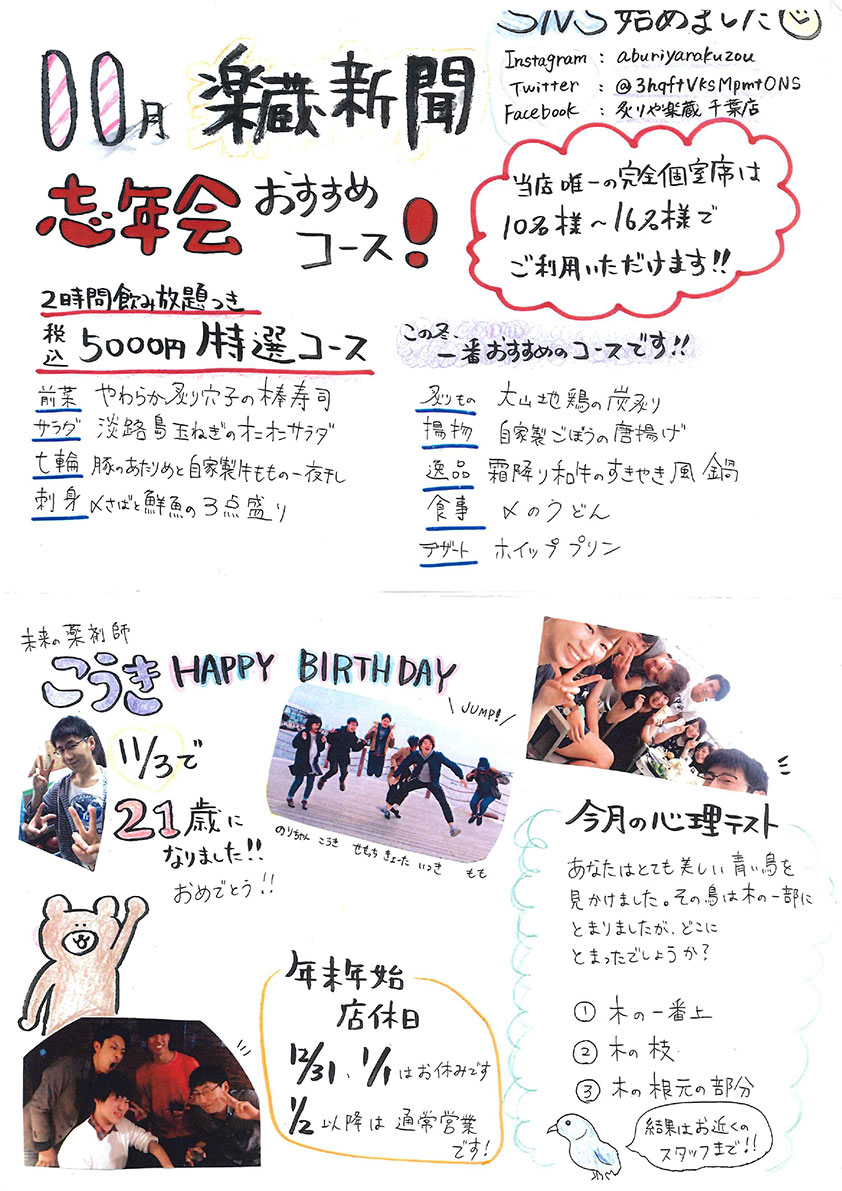 SNS 始めました
Instagram : aburiyarakuzou
Twitter : @3hqftVksMpmtONS
Facebook : 炙りや楽蔵 千葉店
11月 楽蔵新聞
忘年会 おすすめ
コース!
当店唯一の完全個室席は
10名様~16名様で
ご利用いただけます!!
2時間飲み放題つき
税込 5000円 特選コース
この冬、
一番おすすめのコースです!!
前菜 やわらか炙り穴子の棒寿司
サラダ 淡路島玉ねぎのオニオニサラダ
七輪 豚のあたりめと自家製牛ももの一夜干し
刺身 〆さばと鮮魚の3点盛り
炙りもの 大山地鶏の炭炙り
揚物 自家製ごぼうの唐揚げ
逸品 霜降り和牛のすきやき風鍋
食事 〆のうどん
デザート ホイッププリン
未来の薬剤師
こうき HAPPY BIRTHDAY
JUMP!
11/3で
21歳に
なりました!!
おめでとう!!
のりちゃん こうき せもっち きょーた いつき もも
今月の心理テスト
あなたはとても美しい青い鳥を
見かけました。その鳥は木の一部に
とまりましたが、どこに
とまったでしょうか?
① 木の一番上
② 木の枝
③ 木の根元の部分
結果はお近くの
スタッフまで!!
年末年始
店休日
12/31、1/1はお休みです
1/2以降は通常営業
です!